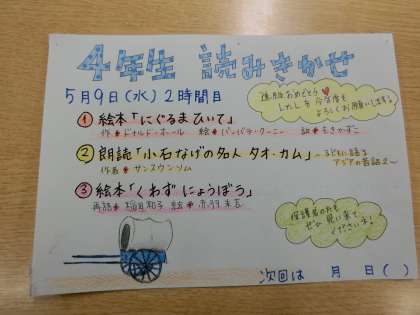 4年生 読みきかせ
5月9日(水)2時間目
進級おめでとう
今年度も
よろしくお願いします!
① 絵本「にぐるまひいて」
作 ドナルド・ホール 絵 バーバラ・クーニー 訳 もきかずこ
② 朗読「小石なげの名人 タオ・カム」
子どもに語る
アジアの昔話2
作者 サンスウンソム
③ 絵本「くわず にょうぼう」
再話 稲田和子 絵 赤羽末吉
保護者の方も
ぜひ見に来て
くださいネ!
次回は 月 日( )